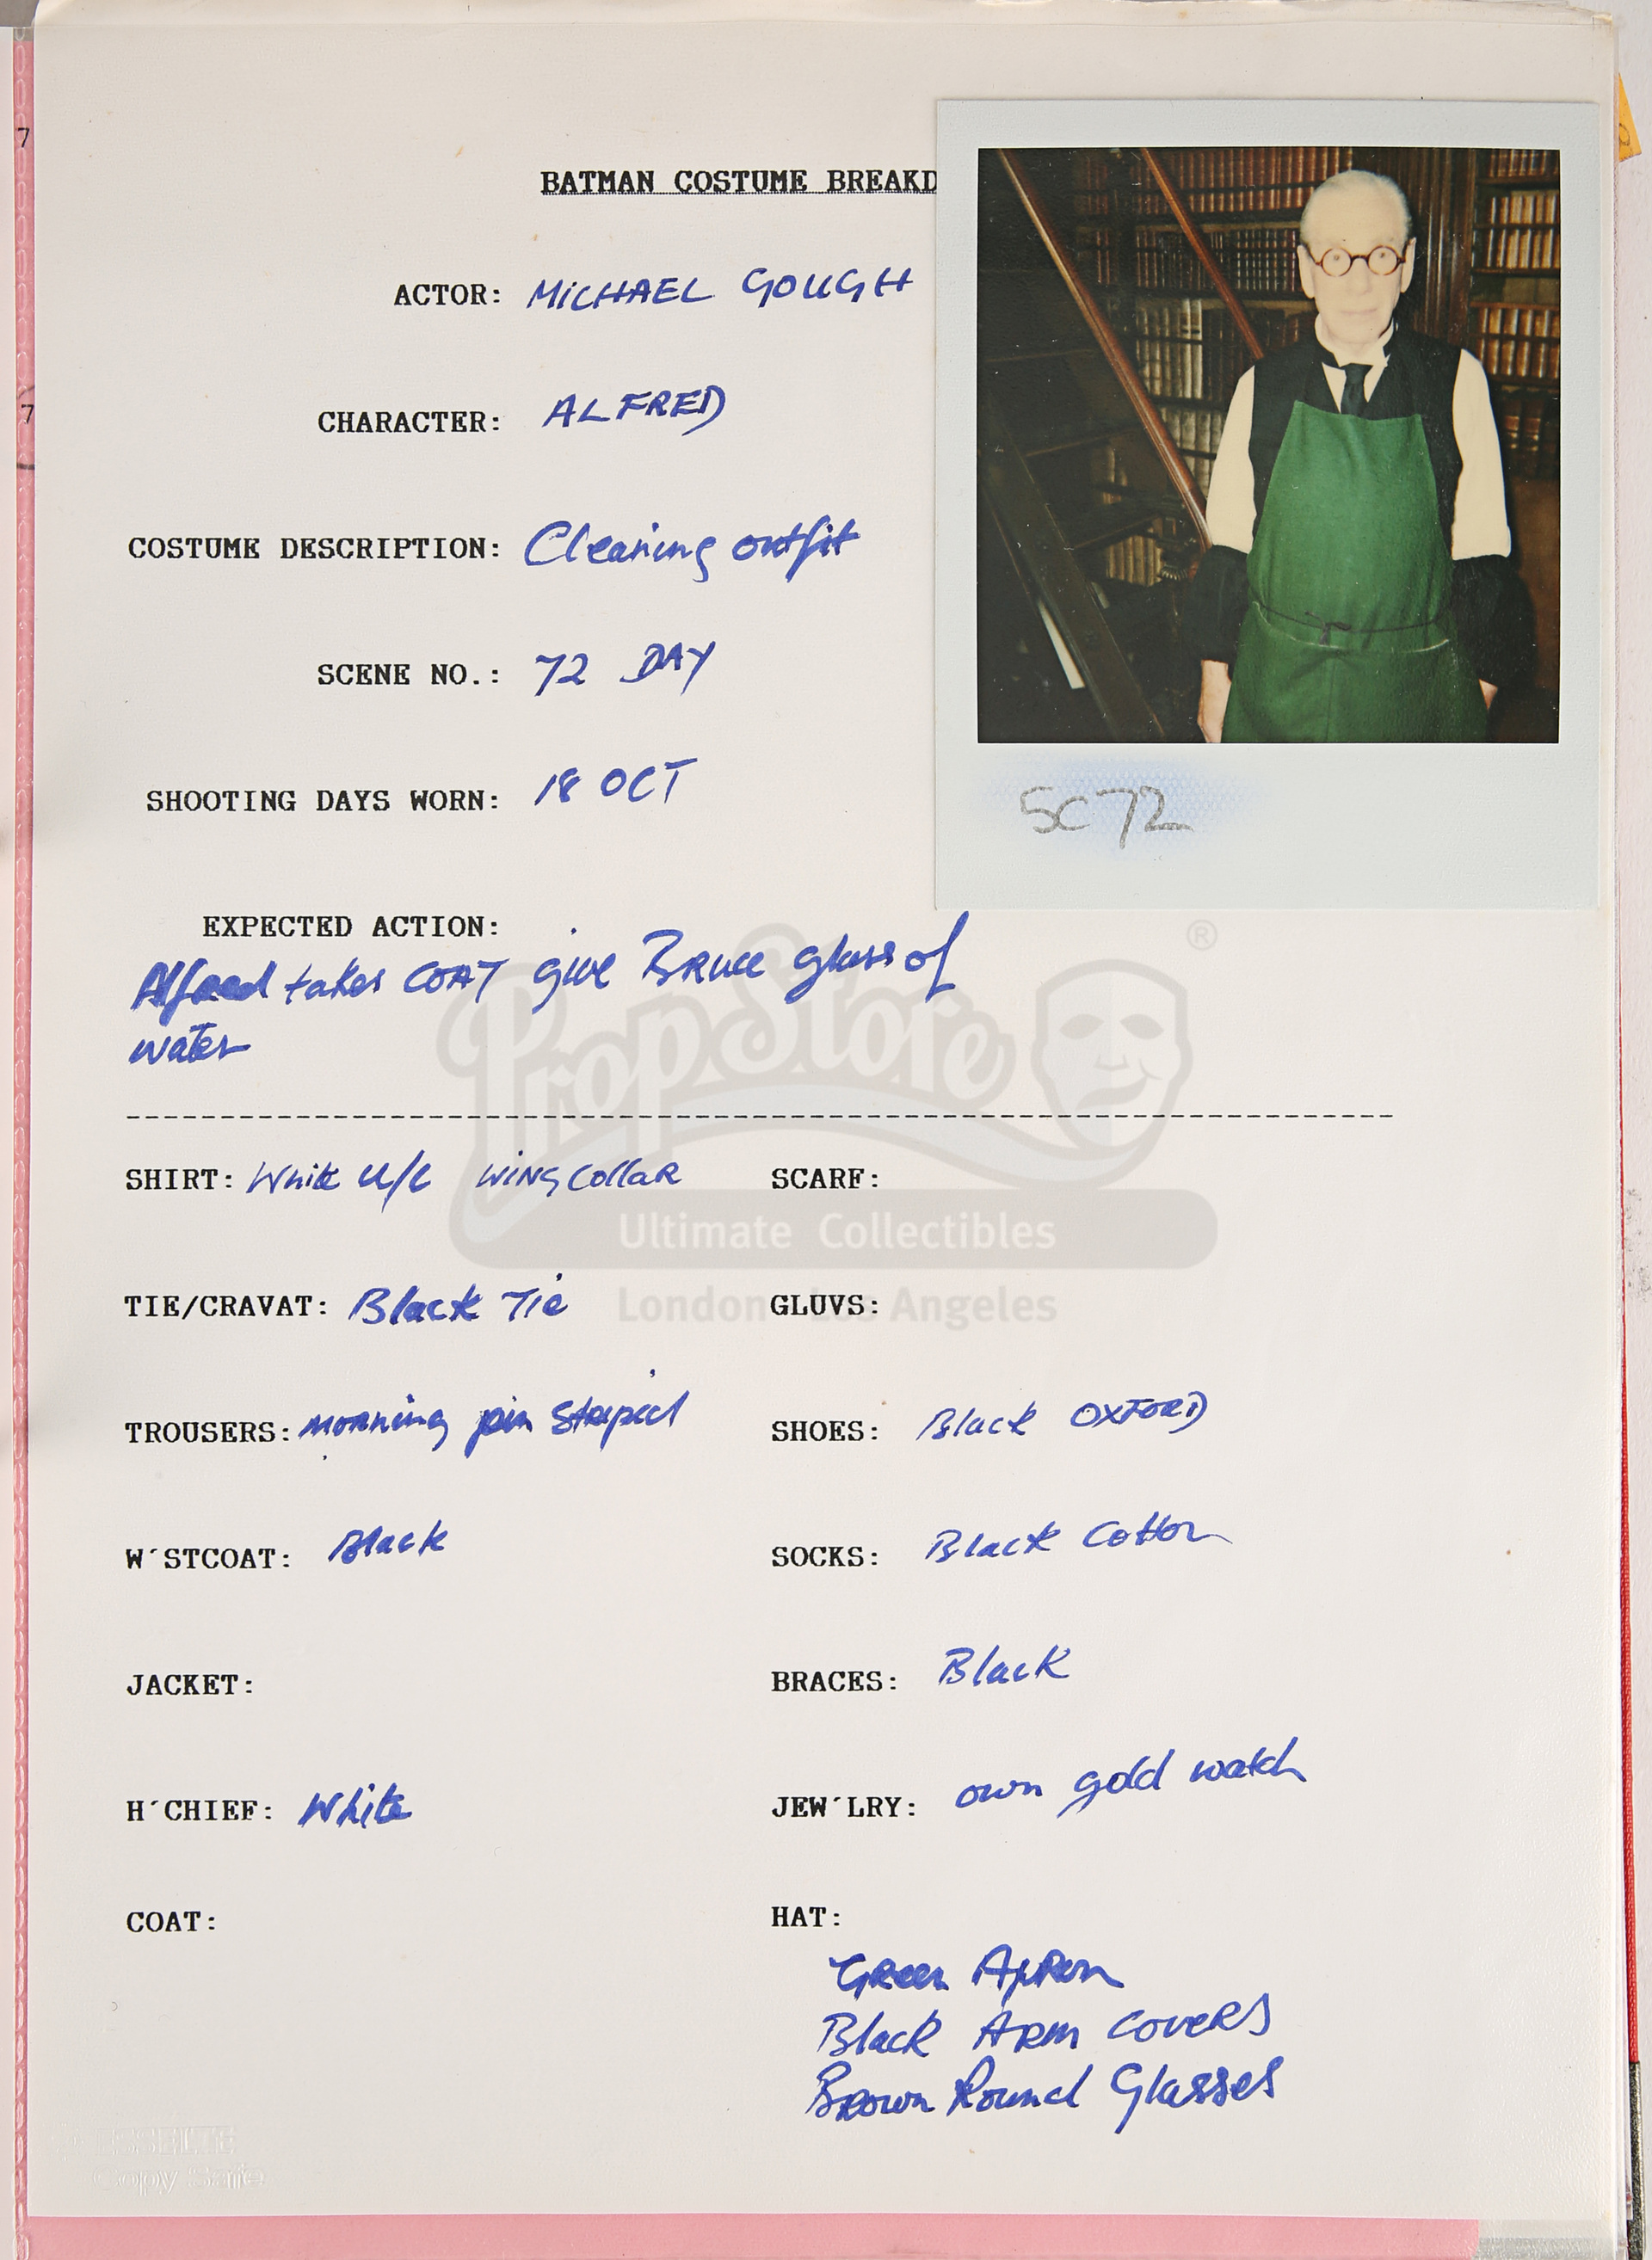 7
BATMAN COSTUME BREAKD
ACTOR: MICHAEL GOUGH
7
CHARACTER: ALFRED
COSTUME DESCRIPTION: Cleaning outfit
SCENE NO.: 72 DAY
SHOOTING DAYS WORN: 18 OCT
SC72
EXPECTED ACTION:
Alfred takes COAT give Bruce glass of
water
PropStore ®
SHIRT: White U/C WING COLLAR SCARF:
Ultimate Collectibles
TIE/CRAVAT: Black Tie GLUVS:
London Los Angeles
TROUSERS: morning pin striped SHOES: Black OXFORD
W'STCOAT: Black SOCKS: Black Cotton
JACKET: BRACES: Black
H'CHIEF: White JEW'LRY: own gold watch
COAT: HAT:
Green Apron
Black Arm Covers
Brown Round Glasses
ESSELTE
Copy Safe